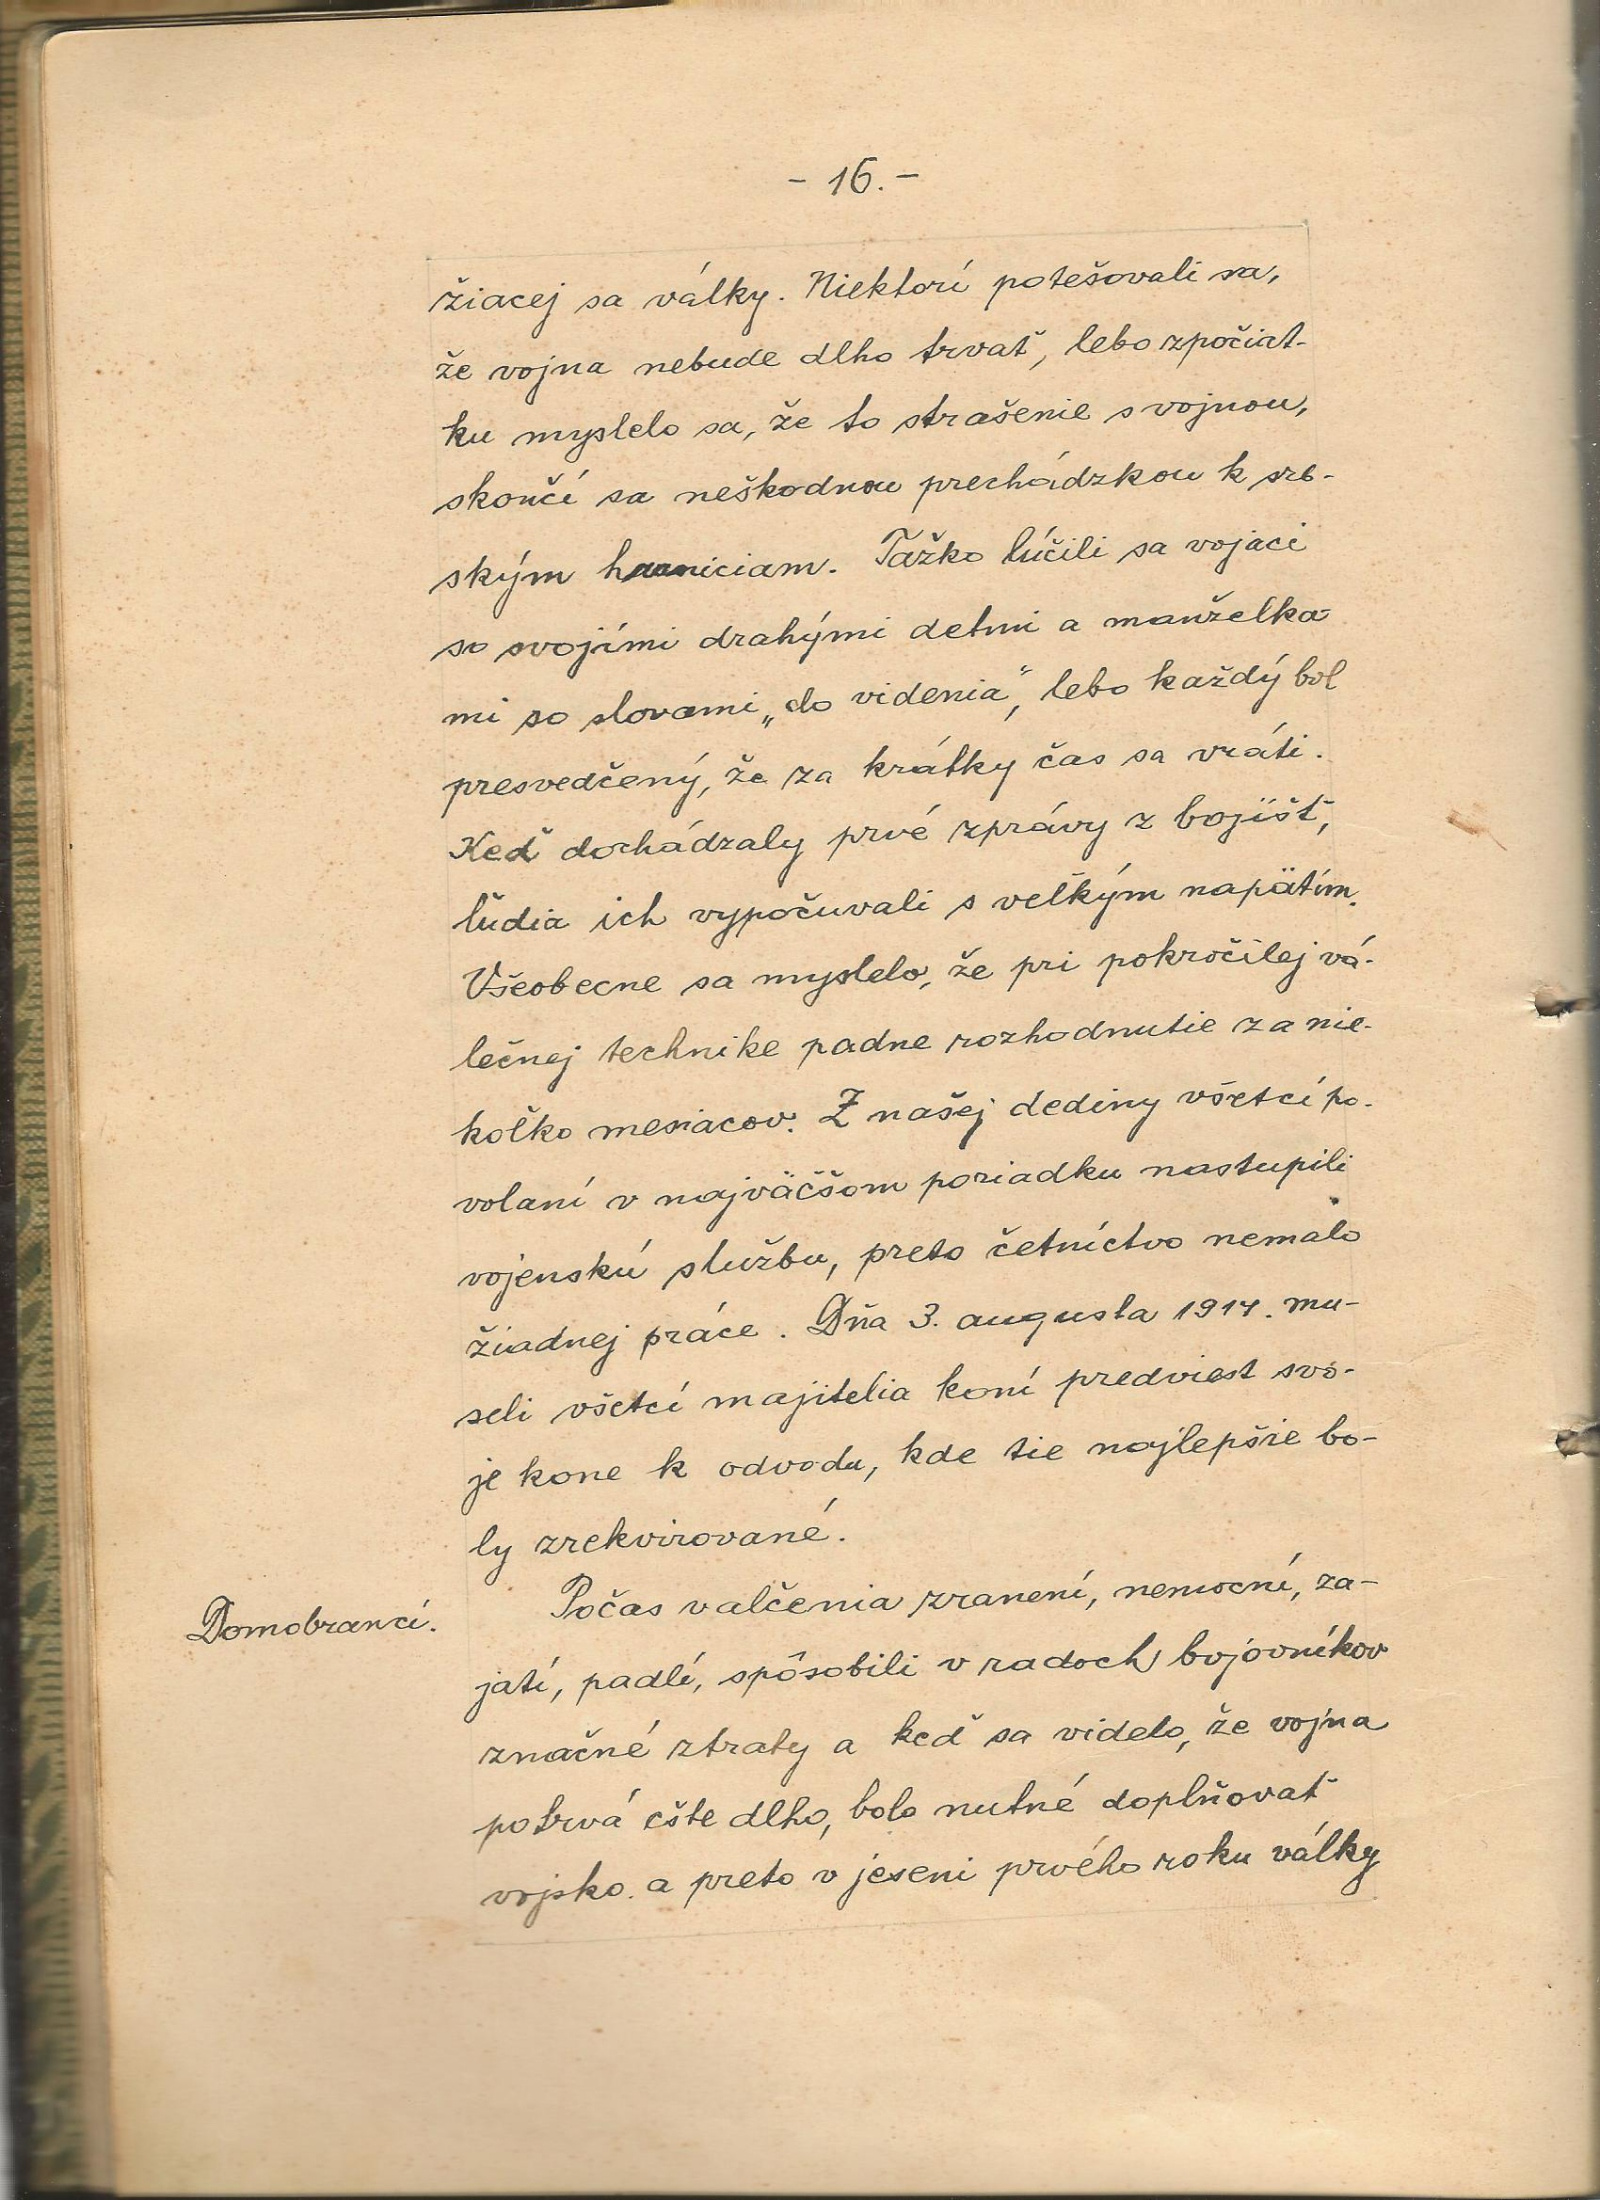 - 16. -
žiacej sa války. Niektorí potešovali sa,
že vojna nebude dlho trvať, lebo zpočiat-
ku myslelo sa, že to strašenie s vojnou,
skončí sa neškodnou prechádzkou k srb-
ským hraniciam. Ťažko lúčili sa vojaci
so svojími drahými detmi a manželka-
mi so slovami „do videnia“, lebo každý bol
presvedčený, že za krátky čas sa vráti.
Keď dochádzaly prvé zprávy z bojíšť,
ľudia ich vypočuvali s veľkým napätím.
Všeobecne sa myslelo, že pri pokročilej vá-
lečnej technike padne rozhodnutie za nie-
koľko mesiacov. Z našej dediny všetcí po-
volaní v najväčšom poriadku nastupili
vojenskú službu, preto četníctvo nemalo
žiadnej práce. Dňa 3. augusta 1914. mu-
seli všetcí majitelia koní predviest svo-
je kone k odvodu, kde tie najlepšie bo-
ly zrekvirované.
Domobranci.
Počas valčenia zranení, nemocní, za-
jatí, padlí, spôsobili v radoch bojovníkov
značné ztraty a keď sa videlo, že vojna
potrvá ešte dlho, bolo nutné doplňovať
vojsko. a preto v jeseni prvého roku války